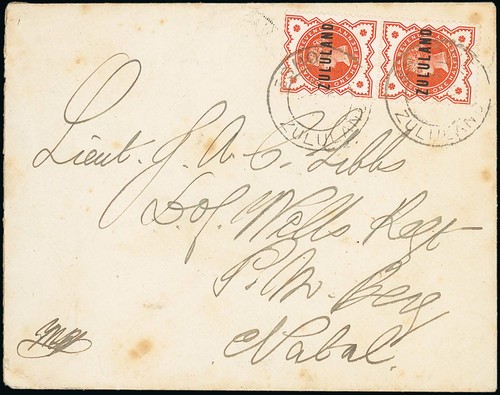 ZULULAND
ZULULAND
ZULULAND
ZULULAND
Lieut. J. A. C. Gibbs
D. of Wells Regt
P. M. Berg
Natal.